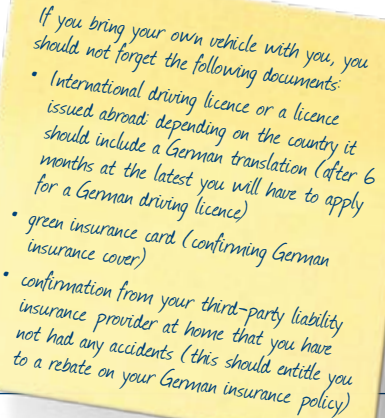 If you bring your own vehicle with you, you
should not forget the following documents:
• International driving licence or a licence
issued abroad; depending on the country it
should include a German translation (after 6
months at the latest you will have to apply
for a German driving licence)
• green insurance card (confirming German
insurance cover)
• confirmation from your third-party liability
insurance provider at home that you have
not had any accidents (this should entitle you
to a rebate on your German insurance policy)